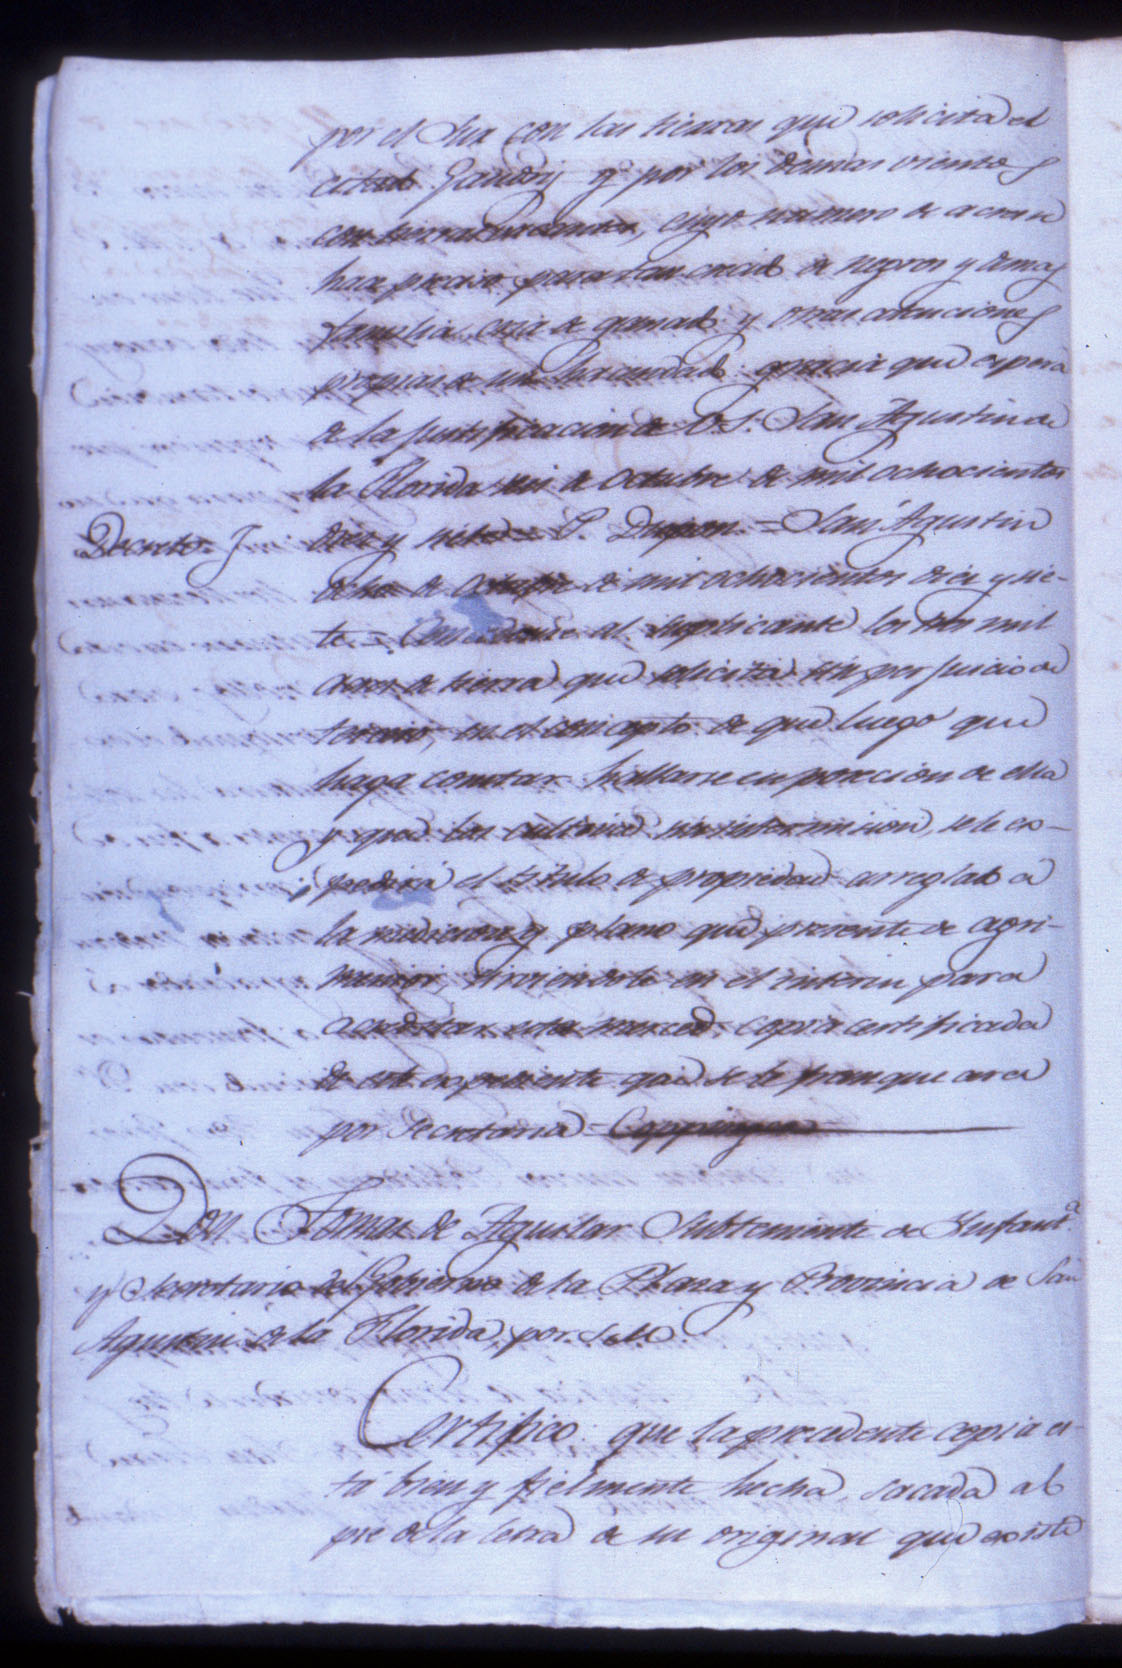 por el Sur con las tierras que solicita el
citado y por los demas vientos
con tierras vacantes, cuyo numero de acres se
hace preciso para tan crecido de negros y demas
familia, cria de ganado y otras atenciones
propias de un hacendado: gracia que espera
de la justificacion de V.S. San Agustin de
la Florida seis de Octubre de mil ochocientos
Decreto diez y siete = P. Dupon = San Agustin
ocho de Octubre de mil ochocientos diez y sie-
te = Concedense al suplicante los tres mil
acres de tierra que solicita sin perjuicio de
tercero, en el concepto de que luego que
haga constar hallarse en posecion de ella
y que las cultiva sin intermision, se le ex-
pedirá el titulo de propiedad arreglado á
la medicion y plano que presente de agri-
mensor, sirviendole en el interin para
acreditar esta merced, copia certificada
de este expediente que se le franqueara
por Secretaria = Coppinger
Don Tomas de Aguilar Subteniente de Infant.a
y Secretario del Gobierno de la Plaza y Provincia de San
Agustin de la Florida, por S.M.
Certifico: que la precedente copia es-
tá bien y fielmente hecha, sacada al
pie de la letra de su original que existe